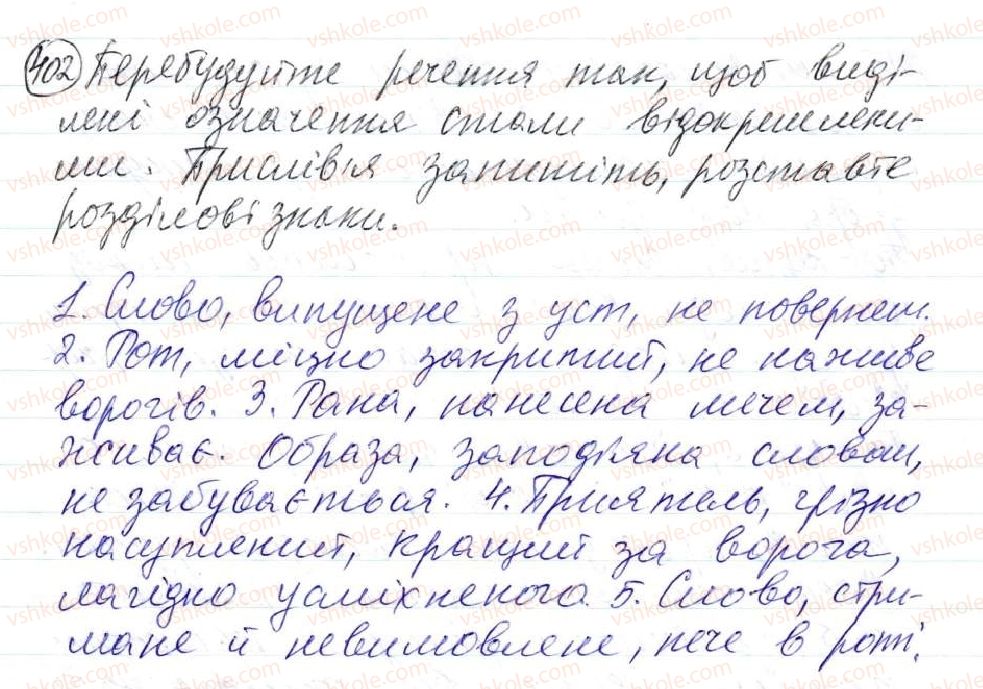 402 Перебудуйте речення так, щоб виді-
лені означення стали відокремлени-
ми. Прислів'я запишіть, розставте
розділові знаки.
1. Слово, випущене з уст, не повернеш.
2. Рот, міцно закритий, не наживе
ворогів. 3. Рана, нанесена мечем, за-
живає. Образа, заподіяна словом,
не забувається. 4. Приятель, грізно
насуплений, кращий за ворога,
лагідно усміхненого. 5. Слово, стри-
мане й невимовлене, пече в роті.